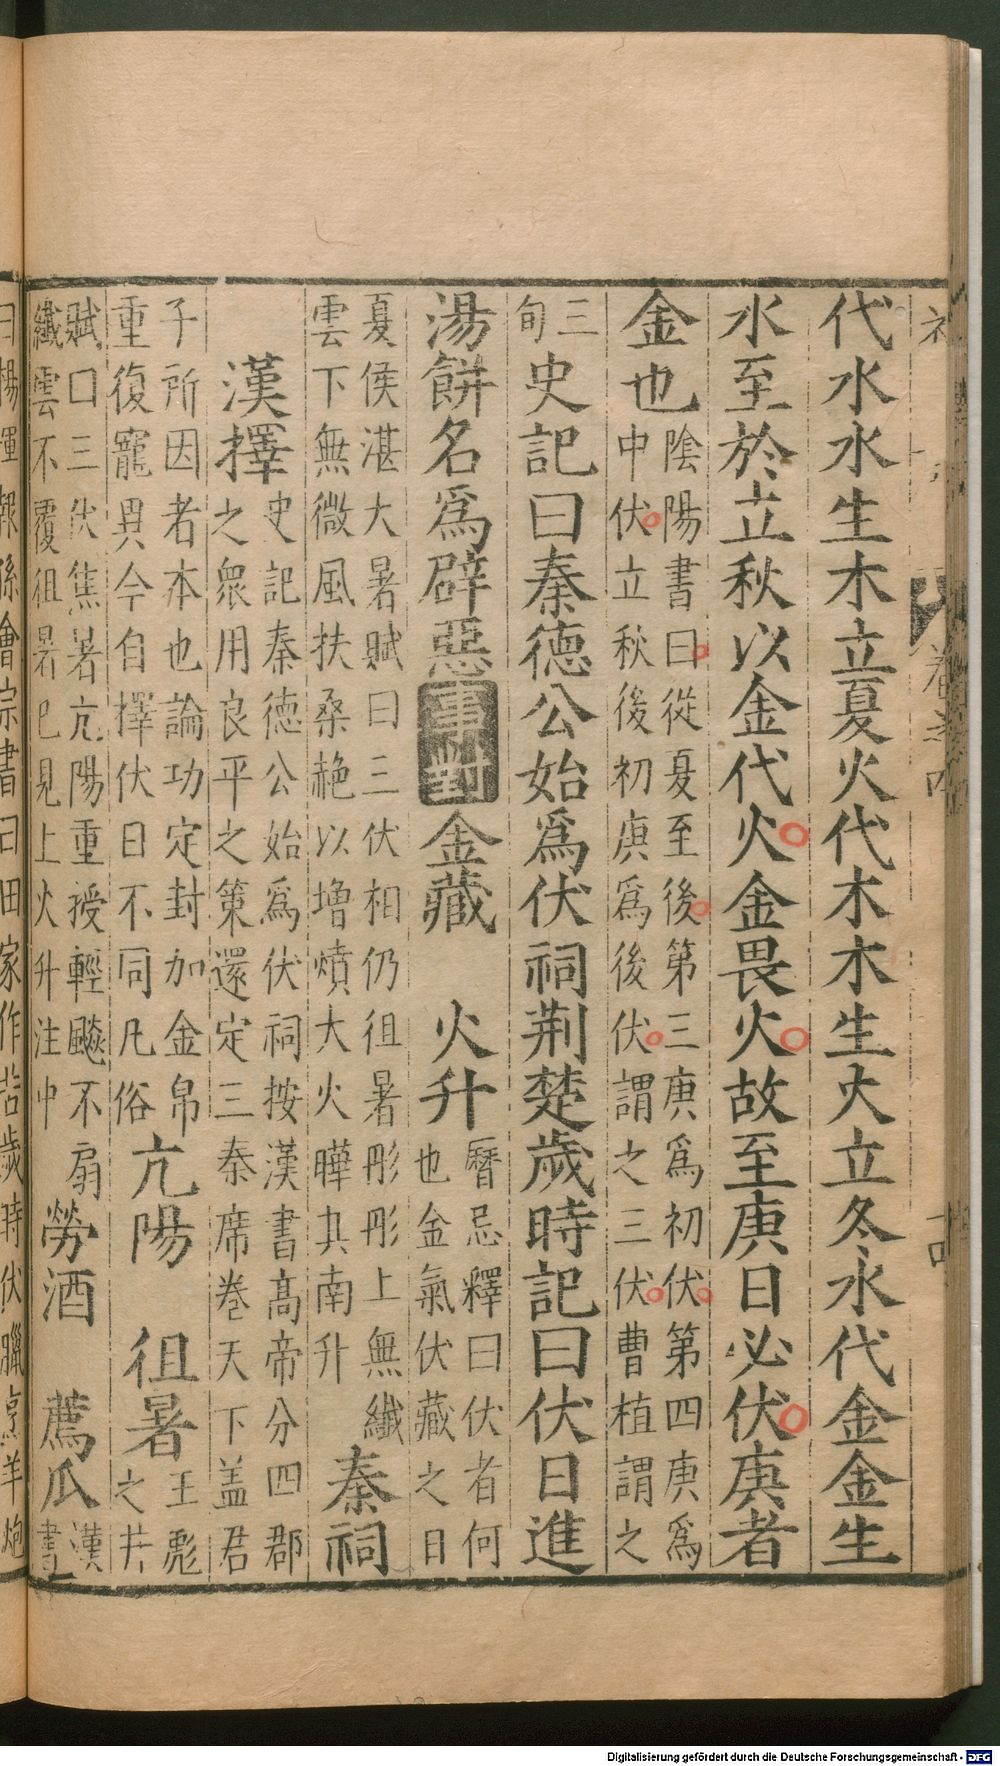 代水水生木立夏火代木木生火立冬水代金金生
水至於立秋以金代火金畏火故至庚日必伏庚者
金也
陰陽書曰從夏至後第三庚爲初伏第四庚爲
中伏立秋後初庚爲後伏謂之三伏曹植謂之
三
旬
史記曰秦德公始爲伏祠荆楚歲時記曰伏日進
湯餅名爲辟惡
事對
金藏 火升
曆忌釋曰伏者何
也金氣伏藏之日
夏侯湛大暑賦曰三伏相仍徂暑彤彤上無纖
雲下無微風扶桑赩以增熿大火曄其南升
秦祠
漢擇
史記秦德公始爲伏祠按漢書高帝分四郡
之衆用良平之策還定三秦席卷天下盖君
子所因者本也論功定封加金帛
重復寵異令自擇伏日不同凡俗
亢陽 徂暑
王彪
之井
賦曰三伏焦暑亢陽重授輕飈不扇
纖雲不覆徂暑已見上火升注中
勞酒 薦瓜
漢
書
曰楊惲報孫會宗書曰田家作苦歲時伏臘烹羊炮
卷之四
Digitalisierung gefördert durch die Deutsche Forschungsgemeinschaft - DFG